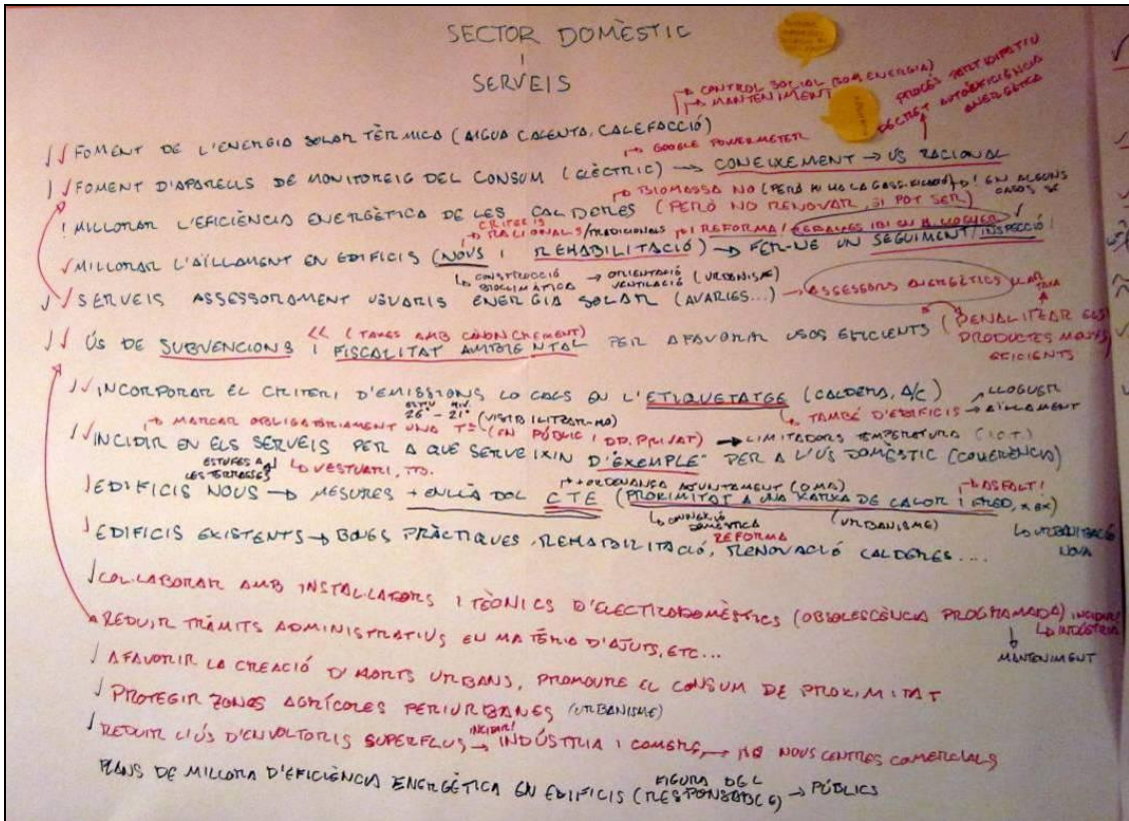 SECTOR DOMÈSTIC
I
SERVEIS
→ CONTROL SOCIAL (SOM ENERGIA)
→ MANTENIMENT
PROCÉS PARTICIPATIU
DECRET AUTOEFICIÈNCIA ENERGÈTICA
FOMENT DE L'ENERGIA SOLAR TÈRMICA (AIGUA CALENTA, CALEFACCIÓ)
→ GOOGLE POWERMETER
FOMENT D'APARELLS DE MONITOREIG DEL CONSUM (ELÈCTRIC) → CONEIXEMENT → ÚS RACIONAL
→ BIOMASSA NO (PERÒ HI HA LA GASSIFICACIÓ) → ! EN ALGUNS CASOS SÍ
! MILLORAR L'EFICIÈNCIA ENERGÈTICA DE LES CALDERES (PERÒ NO RENOVAR, SI POT SER)
CRITERIS
→ RACIONALS/TRADICIONALS → I REFORMA /
MILLORAR L'AÏLLAMENT EN EDIFICIS (NOUS I REHABILITACIÓ) → FER-NE UN SEGUIMENT/INSPECCIÓ!
↳ CONSTRUCCIÓ BIOCLIMÀTICA → ORIENTACIÓ VENTILACIÓ (URBANISME)
SERVEIS ASSESSORAMENT USUARIS ENERGIA SOLAR (AVARIES...) → ASSESSORS ENERGÈTICS
<< (TAXES AMB CÀNON CREMENT)
ÚS DE SUBVENCIONS I FISCALITAT AMBIENTAL PER AFAVORIR USOS EFICIENTS (PENALITZAR ELS PRODUCTES MENYS EFICIENTS
INCORPORAR EL CRITERI D'EMISSIONS LOCALS EN L'ETIQUETATGE (CALDERA, A/C)
↳ TAMBÉ D'EDIFICIS → AÏLLAMENT
LLOGUER
ESTIU HIV.
26° - 21° (VISIBILITZAR-HO)
→ MARCAR OBLIGATÒRIAMENT UNA Tª (EN PÚBLIC I DP. PRIVAT) → LIMITADORS TEMPERATURA (I.C.T.)
INCIDIR EN ELS SERVEIS PER A QUE SERVEIXIN D'"EXEMPLE" PER A L'ÚS DOMÈSTIC (COHERÈNCIA)
ESTUFES A LES TERRASSES
↳ VESTUARI, TTO.
→ + ORDENANÇA AJUNTAMENT (OMA)
→ ASFALT!
EDIFICIS NOUS → MESURES + ENLLÀ DEL CTE (PROXIMITAT A UNA XARXA DE CALOR I FRED,
↳ CONNEXIÓ DOMÈSTICA
(URBANISME)
↳ URBANITZACIÓ NOVA
REFORMA
EDIFICIS EXISTENTS → BONES PRÀCTIQUES, REHABILITACIÓ, RENOVACIÓ CALDERES....
COL·LABORAR AMB INSTAL·LADORS I TÈCNICS D'ELECTRODOMÈSTICS (OBSOLESCÈNCIA PROGRAMADA) INCIDIR!
↳ INDÚSTRIA
REDUIR TRÀMITS ADMINISTRATIUS EN MATÈRIA D'AJUTS, ETC...
MANTENIMENT
AFAVORIR LA CREACIÓ D'HORTS URBANS, PROMOURE EL CONSUM DE PROXIMITAT
PROTEGIR ZONES AGRÍCOLES PERIURBANES (URBANISME)
INCIDIR!
REDUIR L'ÚS D'ENVOLTORIS SUPERFLUS → INDÚSTRIA I COMERÇ → NO NOUS CENTRES COMERCIALS
PLANS DE MILLORA D'EFICIÈNCIA ENERGÈTICA EN EDIFICIS (FIGURA DEL RESPONSABLE) → PÚBLICS